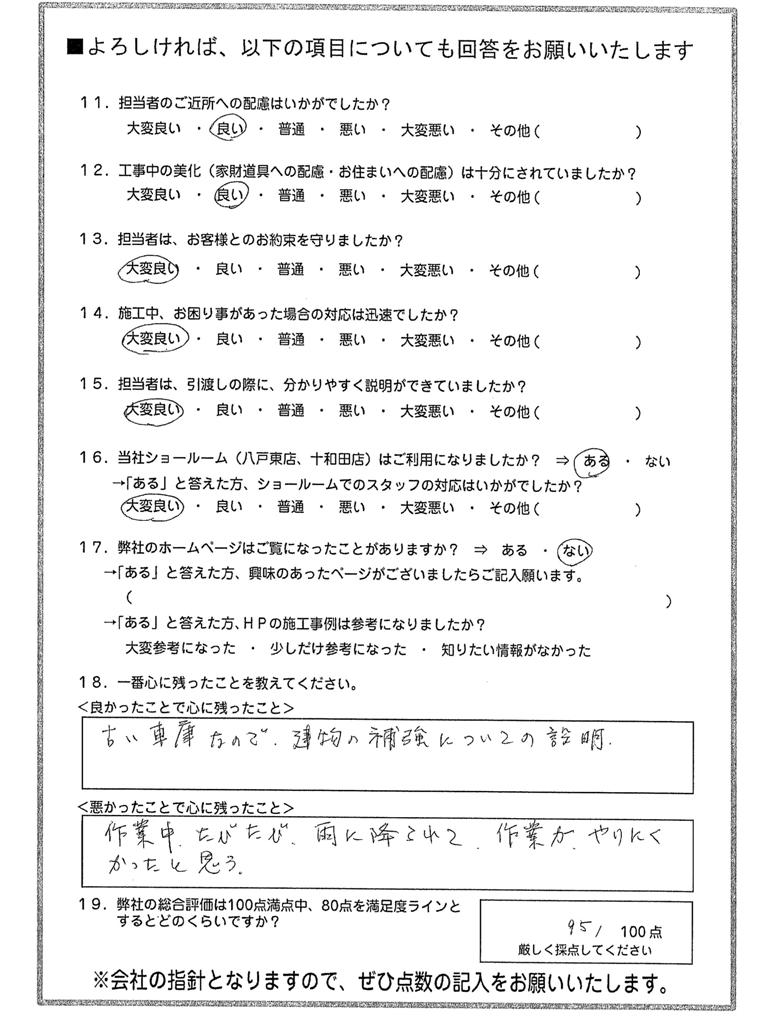 ■よろしければ、以下の項目についても回答をお願いいたします
１１．担当者のご近所への配慮はいかがでしたか？
大変良い ・ 良い ・ 普通 ・ 悪い ・ 大変悪い ・ その他（ ）
１２．工事中の美化（家財道具への配慮・お住まいへの配慮）は十分にされていましたか？
大変良い ・ 良い ・ 普通 ・ 悪い ・ 大変悪い ・ その他（ ）
１３．担当者は、お客様とのお約束を守りましたか？
大変良い ・ 良い ・ 普通 ・ 悪い ・ 大変悪い ・ その他（ ）
１４．施工中、お困り事があった場合の対応は迅速でしたか？
大変良い ・ 良い ・ 普通 ・ 悪い ・ 大変悪い ・ その他（ ）
１５．担当者は、引渡しの際に、分かりやすく説明ができていましたか？
大変良い ・ 良い ・ 普通 ・ 悪い ・ 大変悪い ・ その他（ ）
１６．当社ショールーム（八戸東店、十和田店）はご利用になりましたか？ ⇒ ある ・ ない
→「ある」と答えた方、ショールームでのスタッフの対応はいかがでしたか？
大変良い ・ 良い ・ 普通 ・ 悪い ・ 大変悪い ・ その他（ ）
１７．弊社のホームページはご覧になったことがありますか？ ⇒ ある ・ ない
→「ある」と答えた方、興味のあったページがございましたらご記入願います。
（ ）
→「ある」と答えた方、ＨＰの施工事例は参考になりましたか？
大変参考になった ・ 少しだけ参考になった ・ 知りたい情報がなかった
１８．一番心に残ったことを教えてください。
＜良かったことで心に残ったこと＞
古い車庫なので、建物の補強についての説明.
＜悪かったことで心に残ったこと＞
作業中、たびたび、雨に降られて、作業が、やりにく
かったと思う。
１９．弊社の総合評価は100点満点中、80点を満足度ラインと
するとどのくらいですか？
95/ 100点
厳しく採点してください
※会社の指針となりますので、ぜひ点数の記入をお願いいたします。